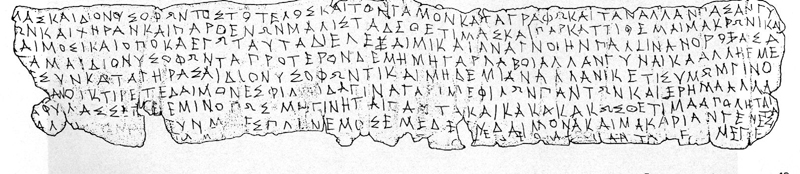 ΜΑΣΚΑΙΔΙΟΝΥΣΟΦΩΝΤΟΣΤΟΤΕΛΟΣΚΑΙΤΟΝΓΑΜΟΝΚΑΤΑΓΡΑΦΩΚΑΙΤΑΝΑΛΛΑΝΠΑΣΑΝΓΥ
ΩΝΚΑΙΧΗΡΑΝΚΑΙΠΑΡΘΕΝΩΝΜΑΛΙΣΤΑΔΕΘΕΤΙΜΑΣΚΑΙΠΑΡΚΑΤΤΙΘΕΜΑΙΜΑΚΡΩΝΙΚΑΙ
ΔΑΙΜΟΣΙΚΑΙΟΠΟΚΑΕΓΩΤΑΥΤΑΔΙΕΛΕΞΑΙΜΙΚΑΙΑΝΑΓΝΟΙΗΝΠΑΛΙΝΑΝΟΡΟΞΑΣΑ
ΓΑΜΑΙΔΙΟΝΥΣΟΦΩΝΤΑΠΡΟΤΕΡΟΝΔΕΜΗΜΗΓΑΡΛΑΒΟΙΑΛΛΑΝΓΥΝΑΙΚΑΑΛΛΗΕΜΕ
ΕΣΥΝΚΑΤΑΓΗΡΑΣΑΙΔΙΟΝΥΣΟΦΩΝΤΙΚΑΙΜΗΔΕΜΙΑΝΑΛΛΑΝΙΚΕΤΙΣΥΜΩΜΓΙΝΟ
ΑΝΟΙΚΤΙΡΕΤΕΔΑΙΜΟΝΕΣΦΙΛΟΙΔΑΓΙΝΑΓΑΡΙΜΕΦΙΛΩΝΠΑΝΤΩΝΚΑΙΕΡΗΜΑΑΛΛΑ
ΦΥΛΑΣΣΕΤΕΕΜΙΝΟΠΩΣΜΗΓΙΝΗΤΑΙΤΑΥΤΑΚΑΙΚΑΚΑΚΑΚΩΣΘΕΤΙΜΑΑΠΟΛΗΤΑΙ
ΑΛ ΥΝΜ ΕΣΠΛΗΝΕΜΟΣΕΜΕΔΕΕΥΔΑΙΜΟΝΑΚΑΙΜΑΚΑΡΙΑΝΓΕΝΕΣ
ΕΜΕΓΕ